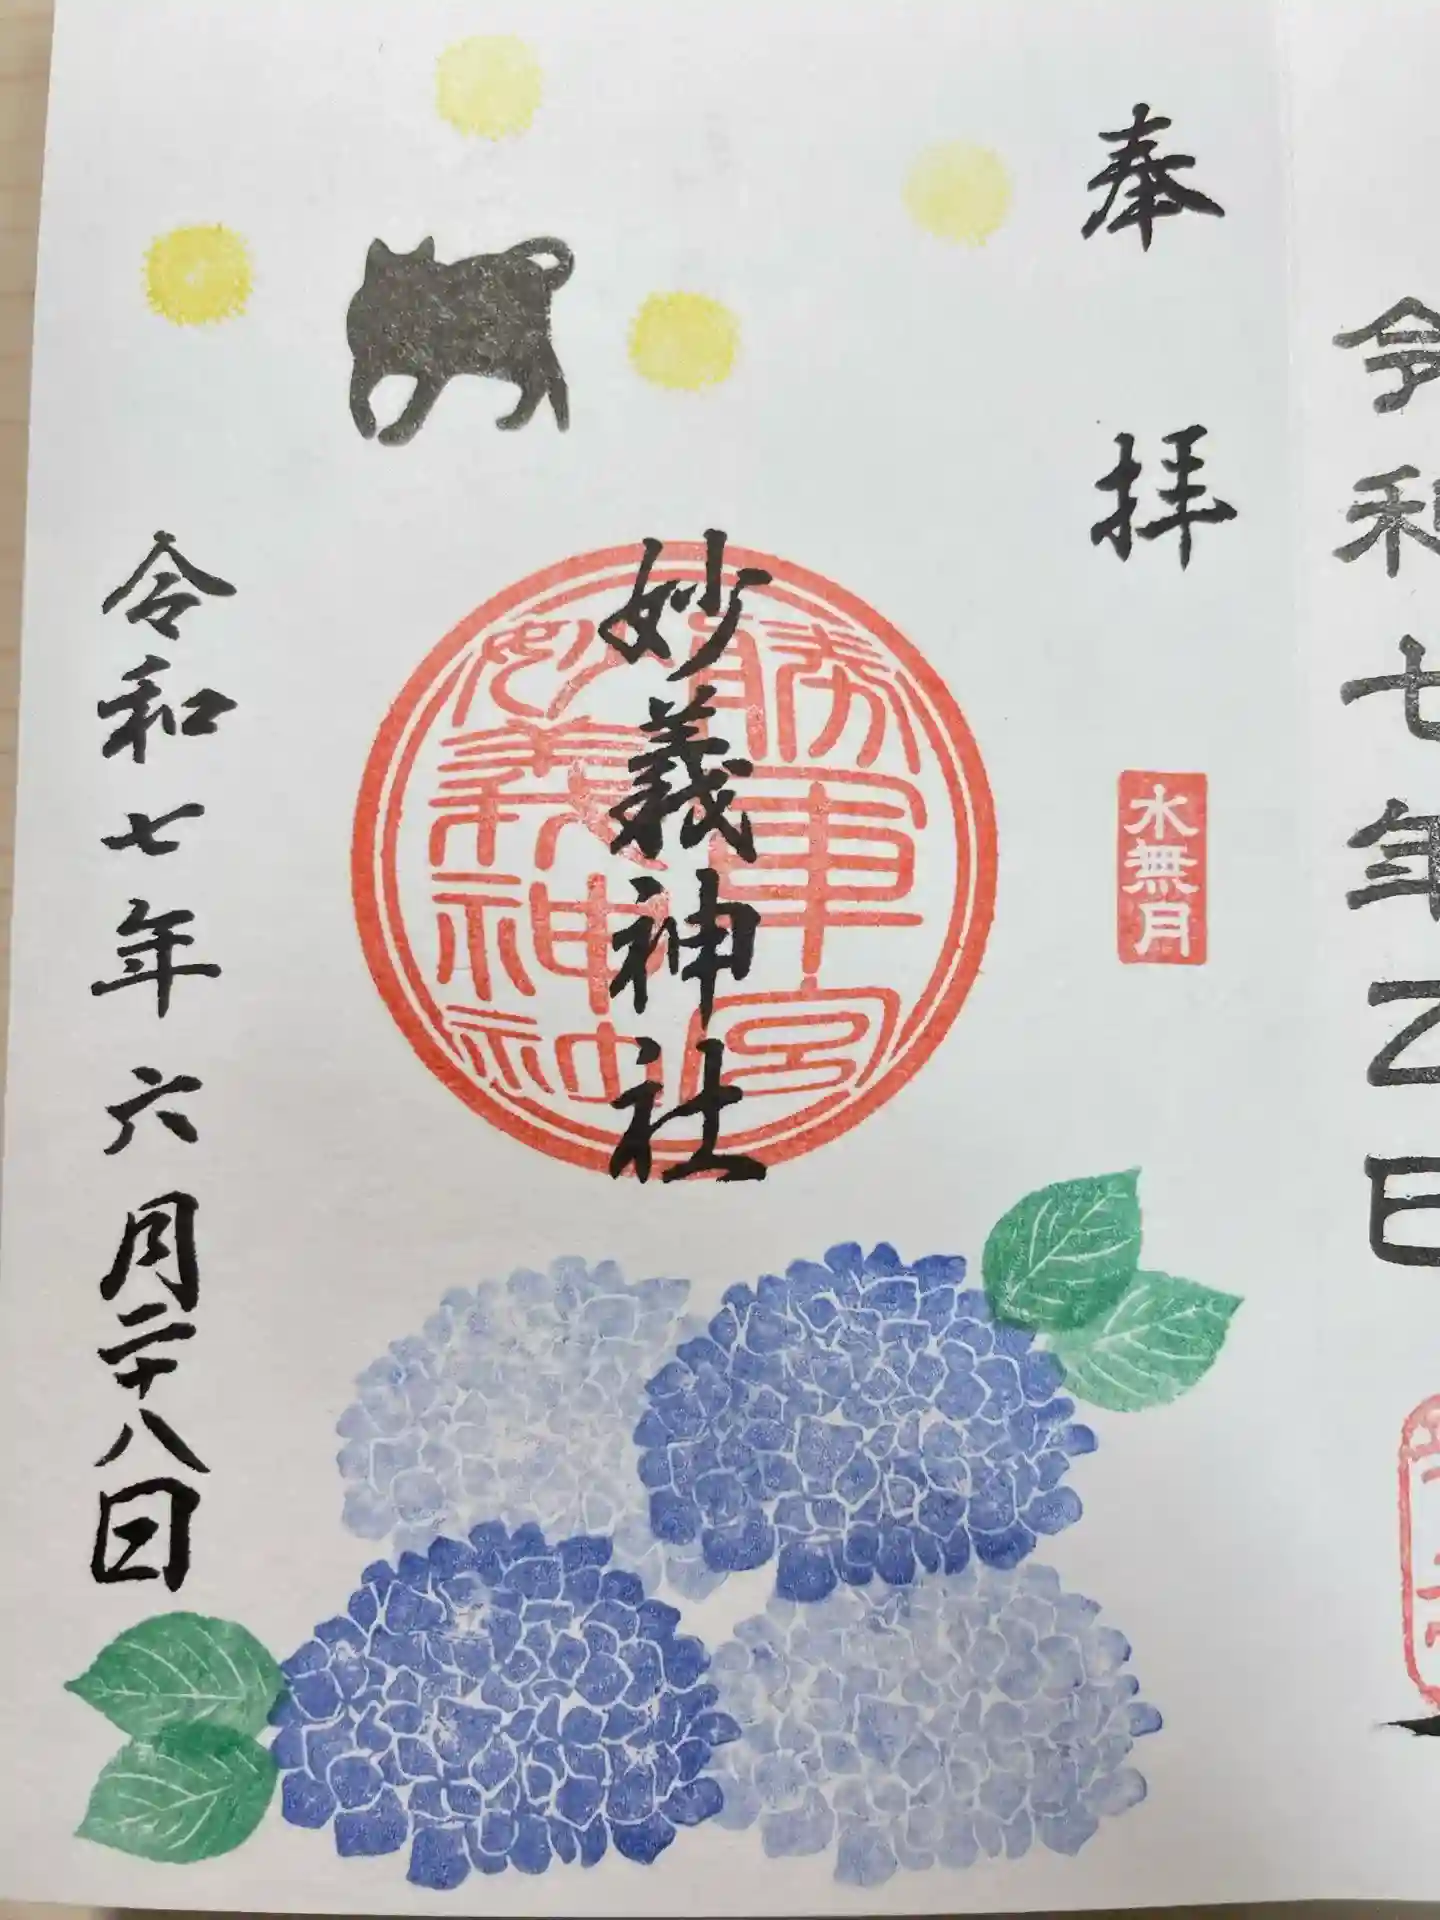 令和七年乙巳
奉拝
水無月
妙義神社
勝軍宮
妙義神社
令和七年六月二十八日